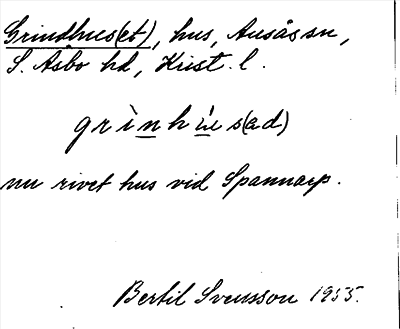 Grindhus(et), hus, Ausåssn,
S. Åsbo hd, Krist. l.
grìnhu̇̀s(ad)
nu rivet hus vid Spannarp.
Bertil Svensson 1955.